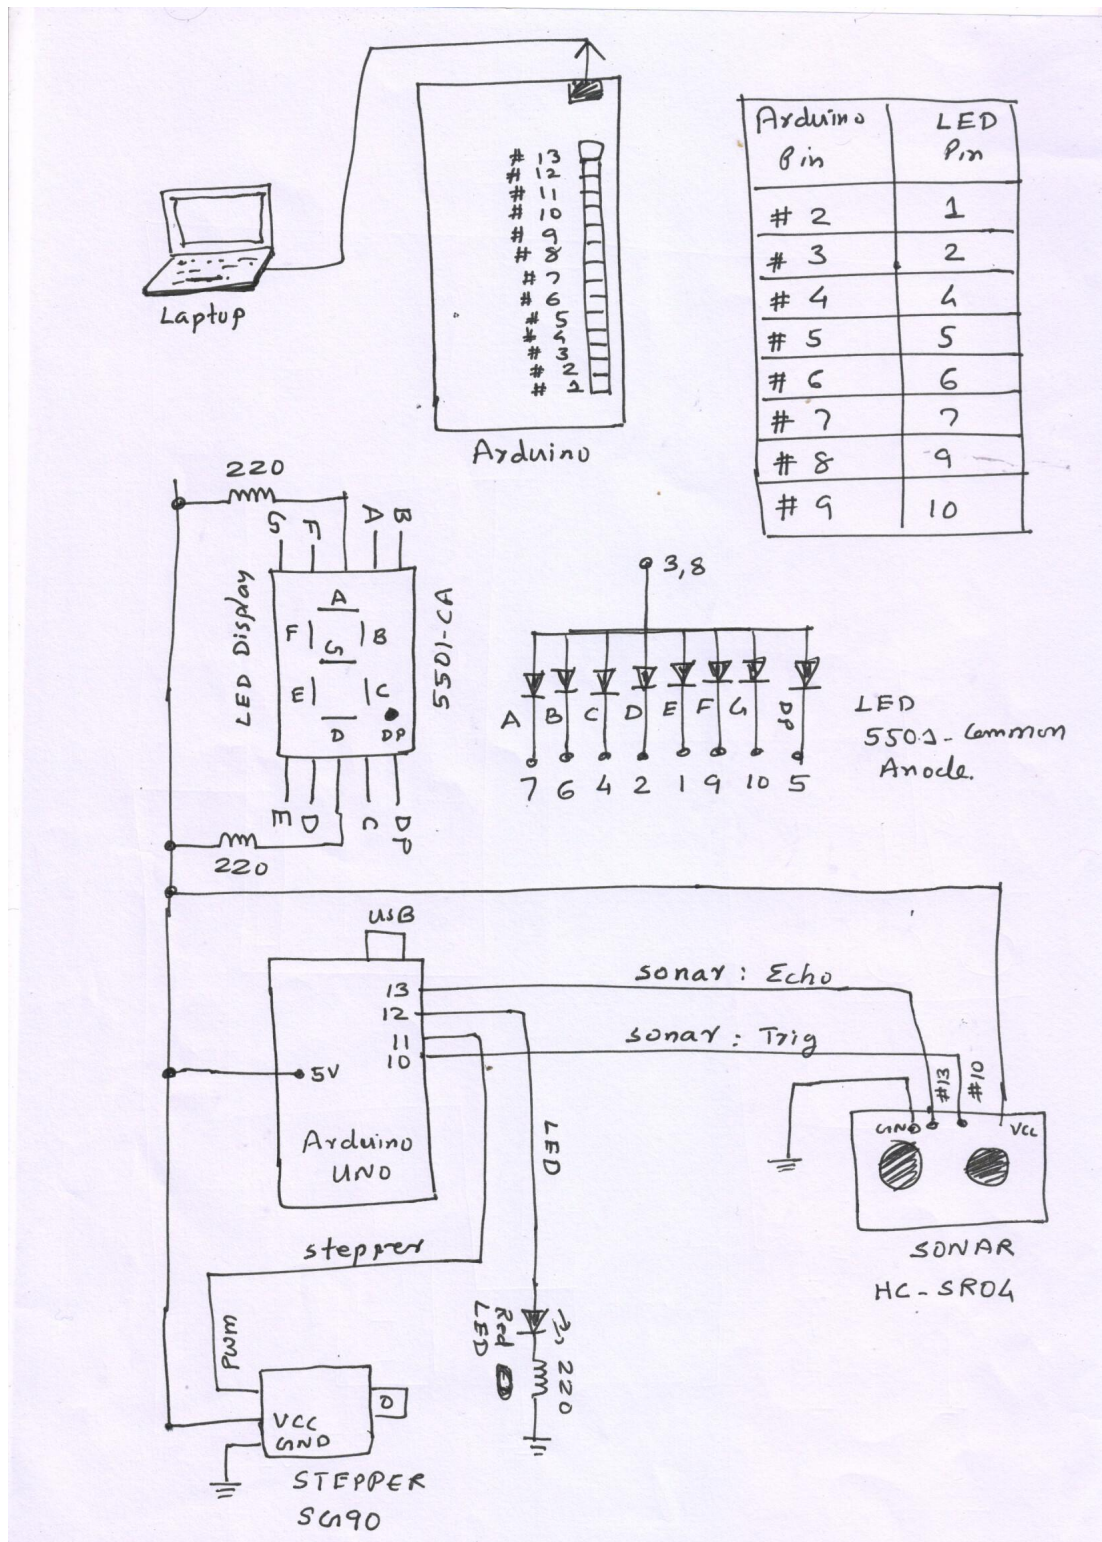 Laptop
# 13
# 12
# 11
# 10
# 9
# 8
# 7
# 6
# 5
# 4
# 3
# 2
# 1
Arduino
Arduino Pin LED Pin
# 2 1
# 3 2
# 4 4
# 5 5
# 6 6
# 7 7
# 8 9
# 9 10
220
G F A B
LED Display
5501-CA
A
F B
G
E C
D DP
E D C DP
220
3,8
A B C D E F G DP
7 6 4 2 1 9 10 5
LED
5501-Common
Anode.
USB
13
12
11
10
5V
Arduino
UNO
sonar: Echo
sonar: Trig
#13
#10
GND VCC
SONAR
HC-SR04
LED
Red
LED
220
stepper
PWM
VCC
GND
STEPPER
SG90